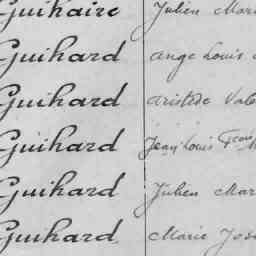 Guihaire Julien Mari
Guihard ange Louis
Guihard aristide Val
Guihard Jean Louis Fcois M
Guihard Julien Mar
Guihard Marie Jose